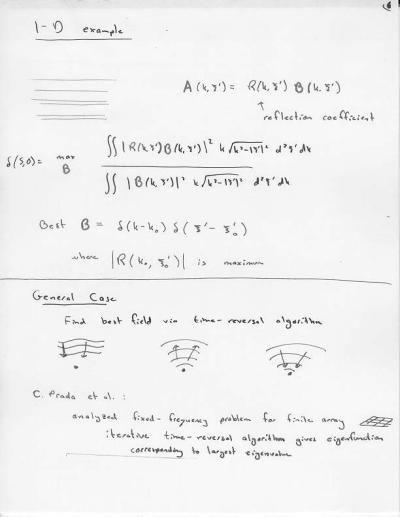 1-D example
A(k,ξ') = R(k,ξ') B(k,ξ')
↑
reflection coefficient
δ(S,0) = max_B ∬ |R(k,ξ')B(k,ξ')|² k√(k²-|ξ'|²) d²ξ'dk / ∬ |B(k,ξ')|² k√(k²-|ξ'|²) d²ξ'dk
Best B = δ(k-k₀) δ(ξ'-ξ₀')
where |R(k₀,ξ₀')| is maximum
General Case
Find best field via time-reversal algorithm
C. Prada et al.:
analyzed fixed-frequency problem for finite array
iterative time-reversal algorithm gives eigenfunction
corresponding to largest eigenvalue